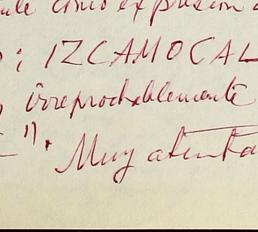 como expresión
: IZCAMOCAL
irreprochablemente
".
Muy atenta